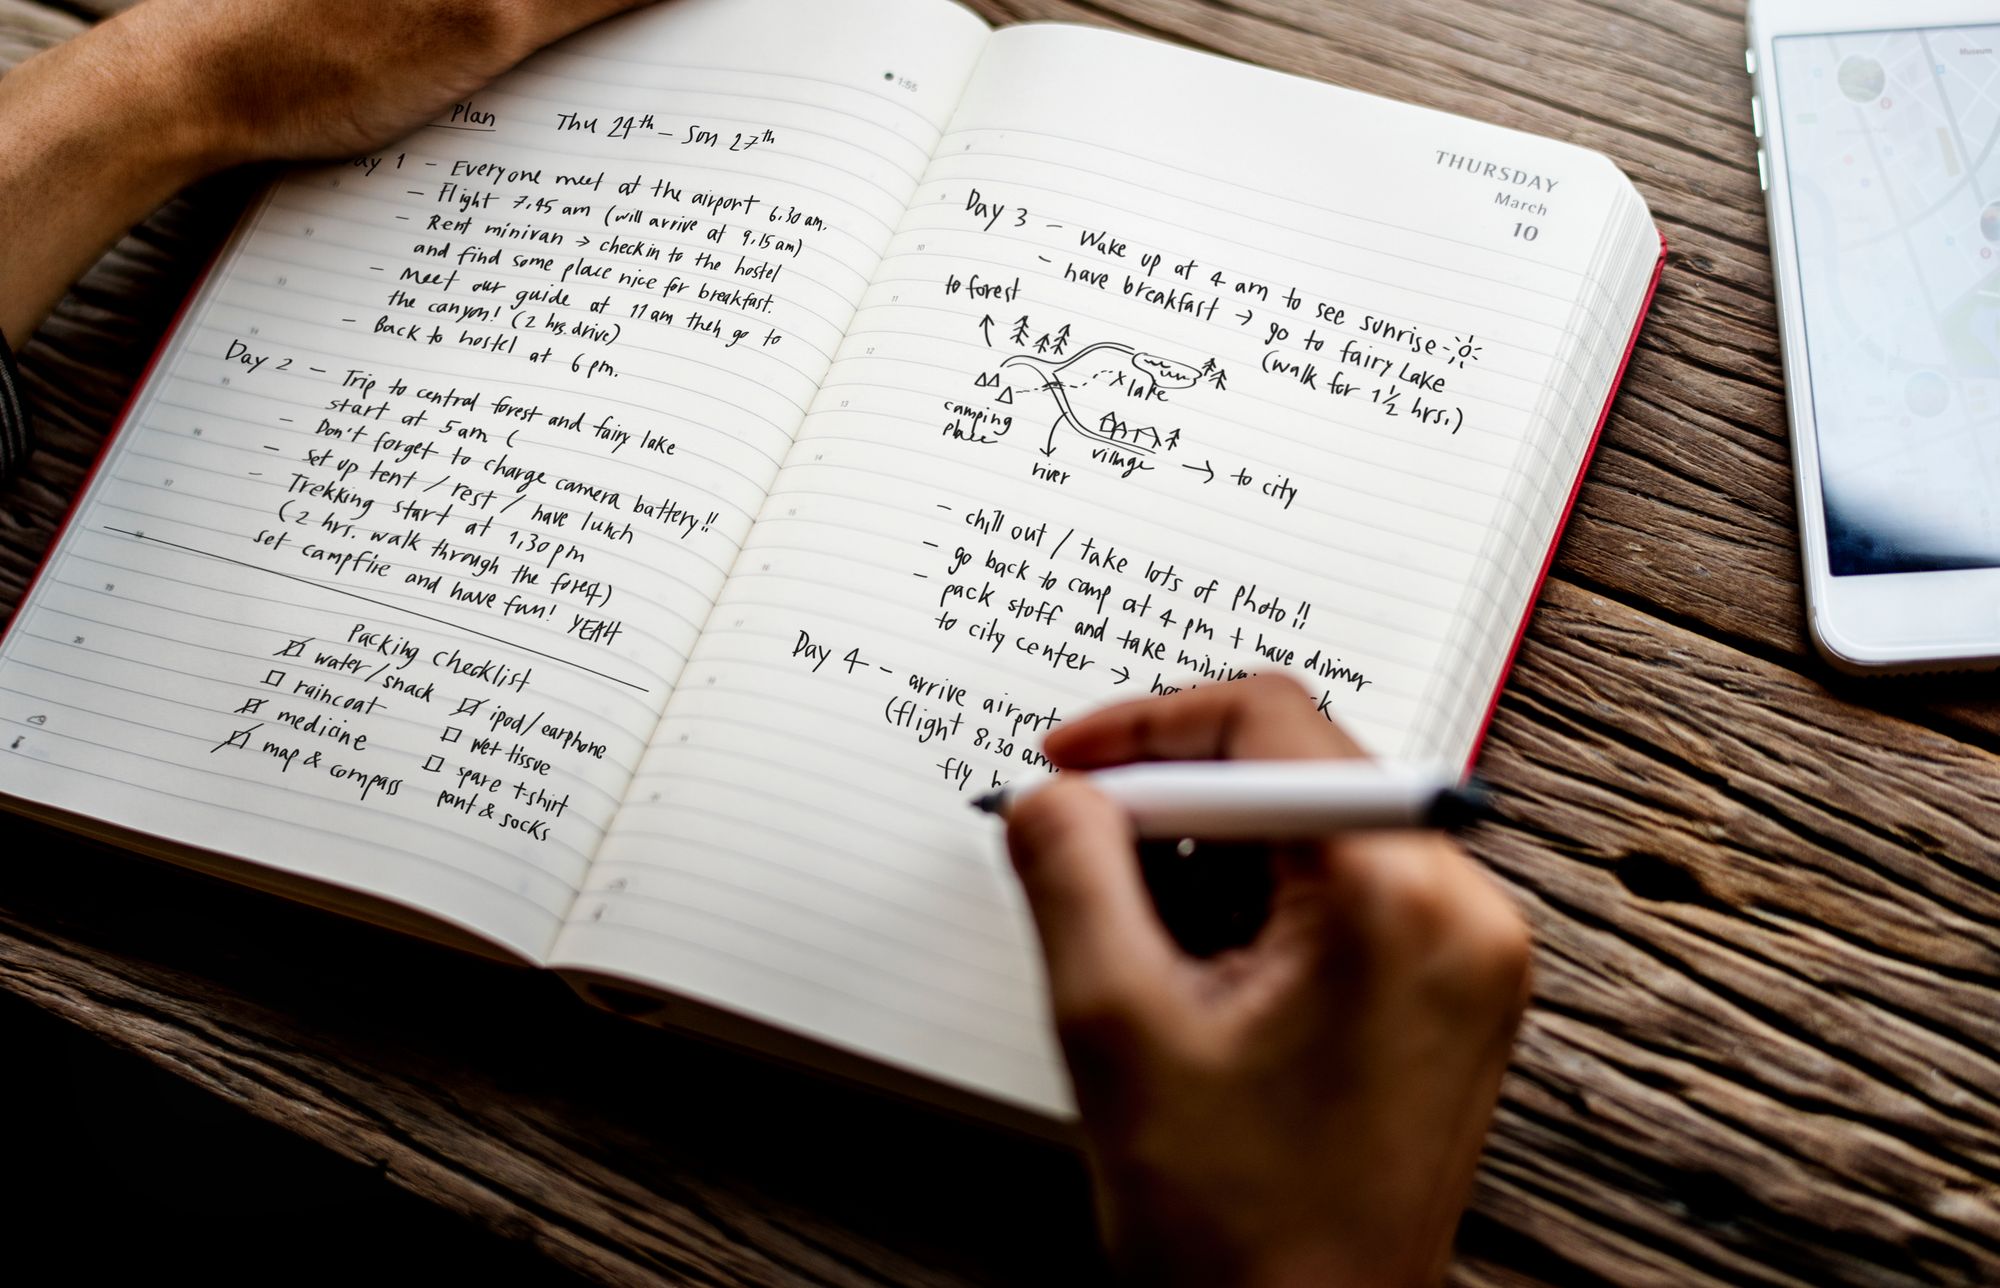 Plan Thu 24th – Sun 27th
1:55
Day 1 – Everyone meet at the airport 6.30 am.
– Flight 7.45 am (will arrive at 9.15 am)
– Rent minivan → checkin to the hostel
and find some place nice for breakfast.
– Meet our guide at 11 am then go to
the canyon! (2 hrs. drive)
– Back to hostel at 6 pm.
Day 2 – Trip to central forest and fairy lake
start at 5am (
– Don't forget to charge camera battery!!
– set up tent / rest / have lunch
– Trekking start at 1.30 pm
(2 hrs. walk through the forest)
set campfire and have fun! YEAH
Packing Checklist
water/snack
raincoat
medicine
map & compass
ipod/earphone
wet tissue
spare t-shirt
pant & socks
THURSDAY
March
10
Day 3 – Wake up at 4 am to see sunrise
– have breakfast → go to fairy Lake
(walk for 1½ hrs.)
to forest
X lake
camping
place
village → to city
river
– chill out / take lots of photo!!
– go back to camp at 4 pm + have dinner
– pack stoff and take
to city center →
Day 4 – arrive airport
(flight 8.30 am.
fly
Museum
8
9
10
11
12
13
14
15
16
17
18
19
20